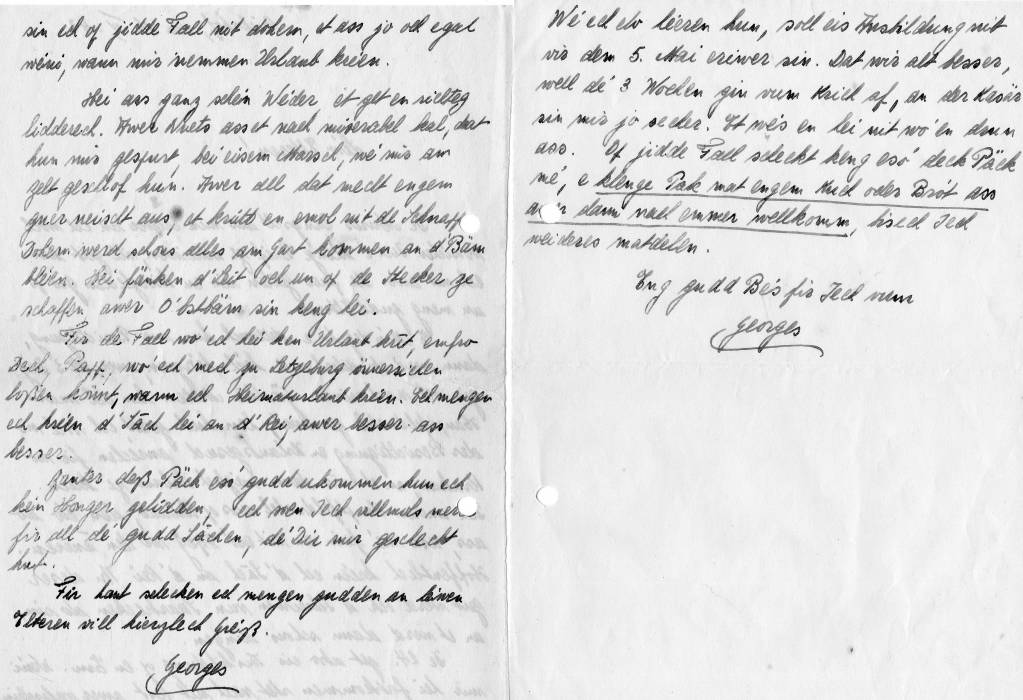 sin ech op jidde Fall nit dohem, et ass jo och egal
wéini, wann mir nemmen Urlaub kréien.
Hei ass ganz schéin Wéder, et get en richteg
lidderech. Awer Nuets ass et nach miserabel kal, dat
hun mir gespuert, bei eisem Marsch, wé mir am
Zelt geschlof hun. Awer all dat mecht engem
guer neischt aus, et kritt en emol nit de Schnapp
Dohem werd schons alles am Gart kommen an d'Bäm
bléien. Hei fänken d'Leit och un of de Stecker ze
schaffen, awer O'bstbäm sin keng hei.
Fir de Fall wo' ech hei ken Urlaub krit, emfro
Dech, Papp, wo' ech mech zu Letzeburg
loßen könnt, wann ech Heimaturlaub kréien. Ech mengen
ech kréien d'Säch hei an d'Rei, awer besser ass
besser.
Zanter deß Päck eso' gudd ukommen hun ech
kén Honger gelidden, ech soen Iech villmols merci
fir all dé gudd Sächen, dé Dir mir geschéckt
hut.
Fir haut schécken ech mengen gudden an léiwen
Elteren vill hierzlech Gréiß.
Georges
Wé ech elo héieren hun, soll eis Ausbildung nit
vir dem 5. Mai eriwer sin. Dat wir alt besser,
well dé 3 Wochen gin vum Krich af, an der Kasär
sin mir jo secher. Et wés en hei nit wo' en drun
ass. Of jidde Fall schéckt keng eso' déck Päck
mé, e klenge Pak mat engem Kuch oder Brót ass
dann nach emmer wellkomm, bis ech Iech
weideres matdélen.
Eng gudd Bés fir Iech vum
Georges